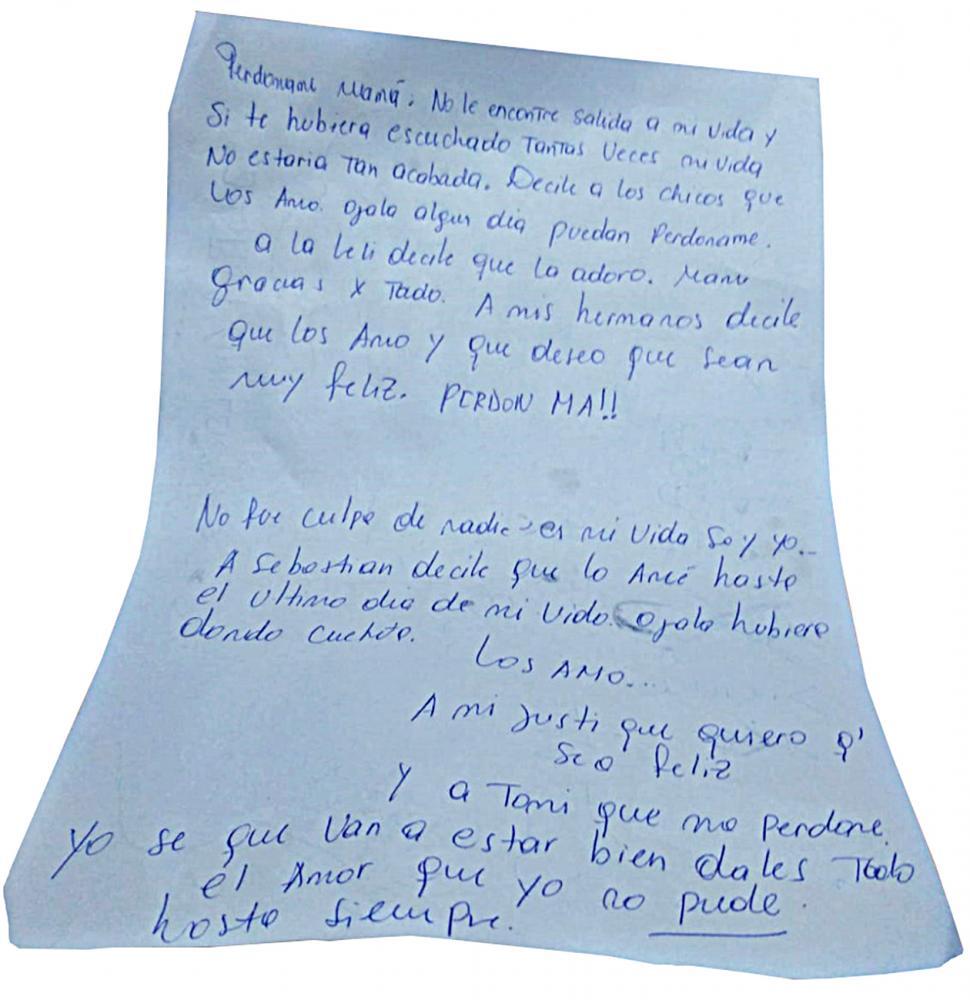 Perdoname Mamá, No le encontre salida a mi vida y
Si te hubiera escuchado Tantas Veces mi vida
No estaria Tan acabada. Decile a los chicos que
Los Amo. ojala algun dia puedan Perdoname.
a la Leli decile que la adoro. Manu
gracias x Todo. A mis hermanos decile
que los Amo y que deseo que sean
muy feliz. PERDON MA!!
No fue culpa de nadie es mi Vida Soy yo..
A Sebastian decile que lo Amé hasta
el ultimo dia de mi Vida. ojala hubiera
dondo cuenta.
Los AMO...
A mi Justi que quiero q'
sea feliz
Y a Tomi que me perdone.
Yo se que Van a estar bien dales Todo
el Amor que yo no pude.
hasta siempre.